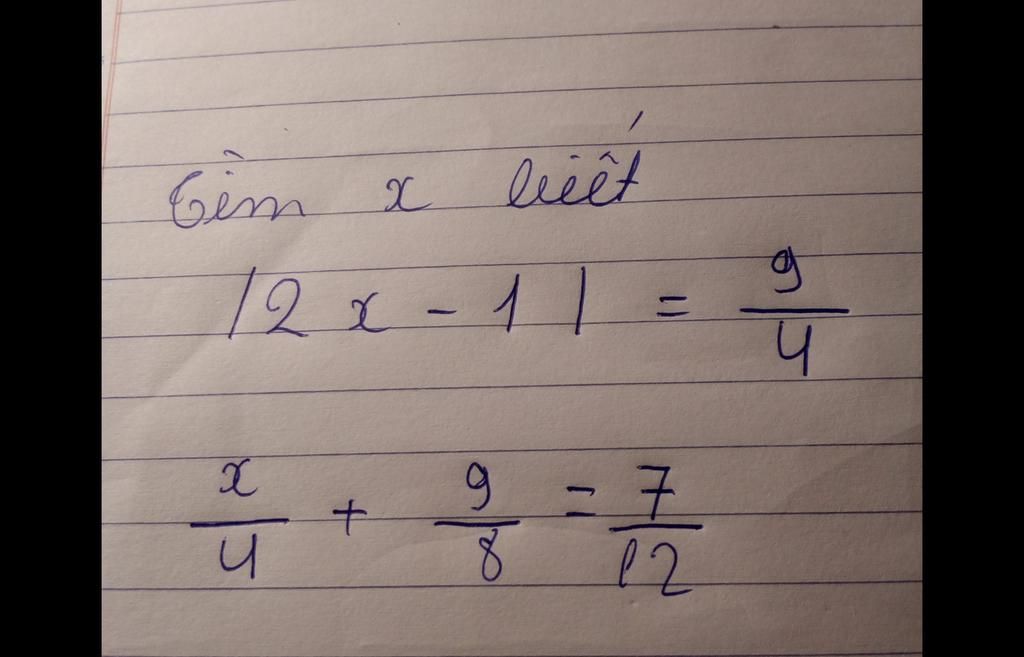 Tìm x biết
|2x - 1| = 9/4
x/4 + 9/8 = 7/12